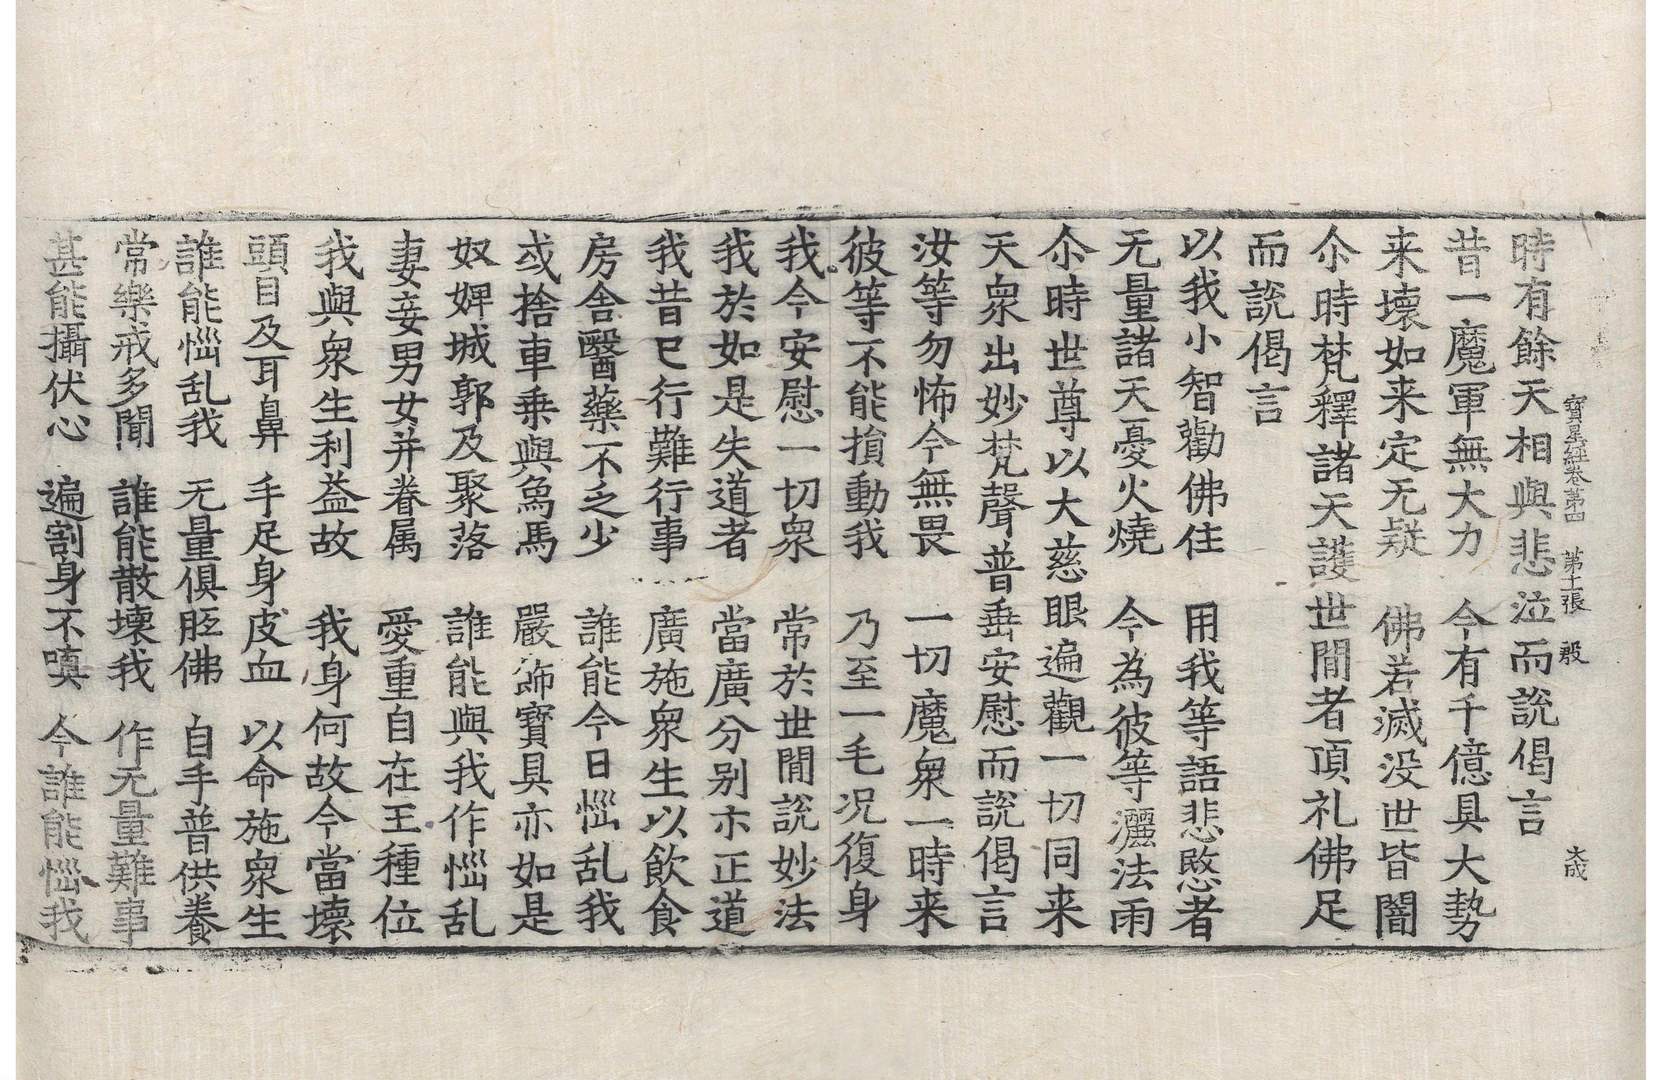 寶星經卷第四　第十一張　殷　大成
時有餘天相與悲泣而說偈言
昔一魔軍無大力　今有千億具大勢
来壞如来定无疑　佛若滅没世皆闇
尒時梵釋諸天護世閒者頂礼佛足
而說偈言
以我小智勸佛住　用我等語悲愍者
无量諸天憂火燒　今為彼等灑法雨
尒時世尊以大慈眼遍觀一切同来
天衆出妙梵聲普垂安慰而說偈言
汝等勿怖今無畏　一切魔衆一時来
彼等不能損動我　乃至一毛况復身
我今安慰一切衆　常於世閒說妙法
我於如是失道者　當廣分别示正道
我昔已行難行事　廣施衆生以飲食
房舍醫藥不之少　誰能今日惱乱我
或捨車乗與象馬　嚴飾寶具亦如是
奴婢城郭及聚落　誰能與我作惱乱
妻妾男女并眷属　愛重自在王種位
我與衆生利益故　我身何故今當壞
頭目及耳鼻　手足身皮血　以命施衆生
誰能惱乱我　无量俱胝佛　自手普供養
常樂戒多聞　誰能散壞我　作无量難事
甚能攝伏心　遍割身不嗔　今誰能惱我